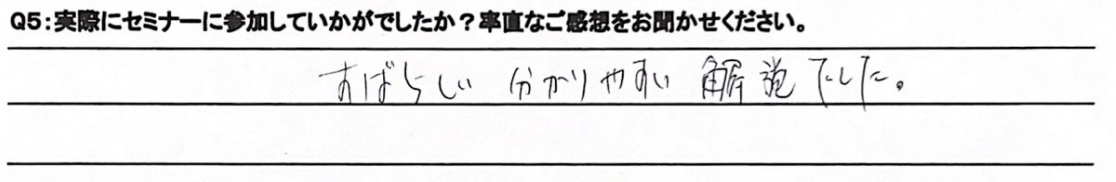 Q5:実際にセミナーに参加していかがでしたか？率直なご感想をお聞かせください。
すばらしい 分かりやすい 解説でした。